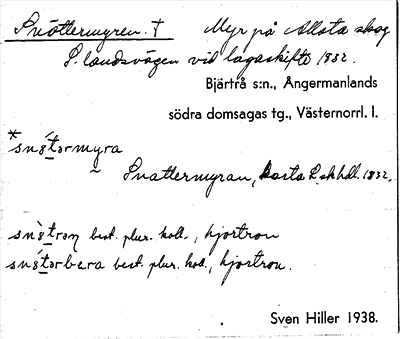 Snöttermyren. † Myr på Allsta skog
S. landsvägen vid lagaskifte 1832.
Bjärtrå s:n., Ångermanlands
södra domsagas tg., Västernorrl. l.
*sn8̀tərmyra
Snattermyran, karta L. sk. hdl. 1832.
sn8̀trəṇ best. plur. koll., hjortron
sn8́tərbæra best. plur. koll., hjortron.
Sven Hiller 1938.